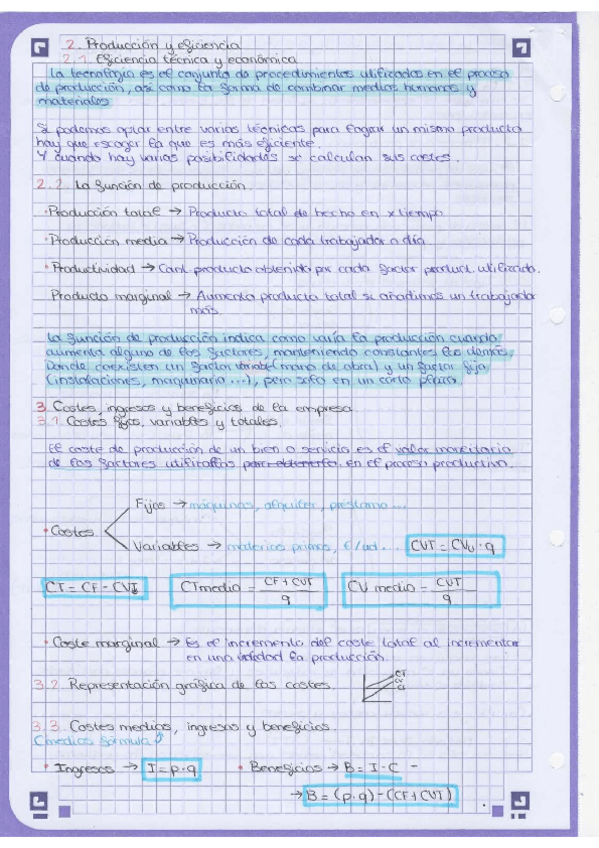 2. Producción y eficiencia
2.1. Eficiencia técnica y económica
La tecnología es el conjunto de procedimientos utilizados en el proceso
de producción, así como la forma de combinar medios humanos y
materiales
Si podemos optar entre varias técnicas para lograr un mismo producto
hay que escoger la que es más eficiente.
Y cuando hay varias posibilidades se calculan sus costes.
2.2. La función de producción.
· Producción total → Producto total de hecho en x tiempo
· Producción media → Producción de cada trabajador a día
· Productividad → Cant. producto obtenido por cada factor product. utilizado.
Producto marginal → Aumento producto total si añadimos un trabajador
más.
La función de producción indica como varía la producción cuando
aumenta alguno de los factores, manteniendo constantes los demás.
Donde coexisten un factor variable (mano de obra) y un factor fijo
(instalaciones, maquinaria ...), pero solo en un corto plazo.
3. Costes, ingresos y beneficios de la empresa
3.1. Costes fijos, variables y totales.
El coste de producción de un bien o servicio es el valor monetario
de los factores utilizados para obtenerlo, en el proceso productivo.
Fijos → máquinas, alquiler, préstamo ...
· Costes
Variables → materias primas, €/ud... CVT = CVu · q
CT = CF - CVT CTmedio = CF + CVT / q CV medio = CVT / q
· Coste marginal → Es el incremento del coste total al incrementar
en una unidad la producción.
3.2. Representación gráfica de los costes.
CT
CV
3.3. Costes medios, ingresos y beneficios.
Cmedios fórmula
· Ingresos → I = p · q · Beneficios → B = I - C
→ B = (p · q) - (CF + CVT)